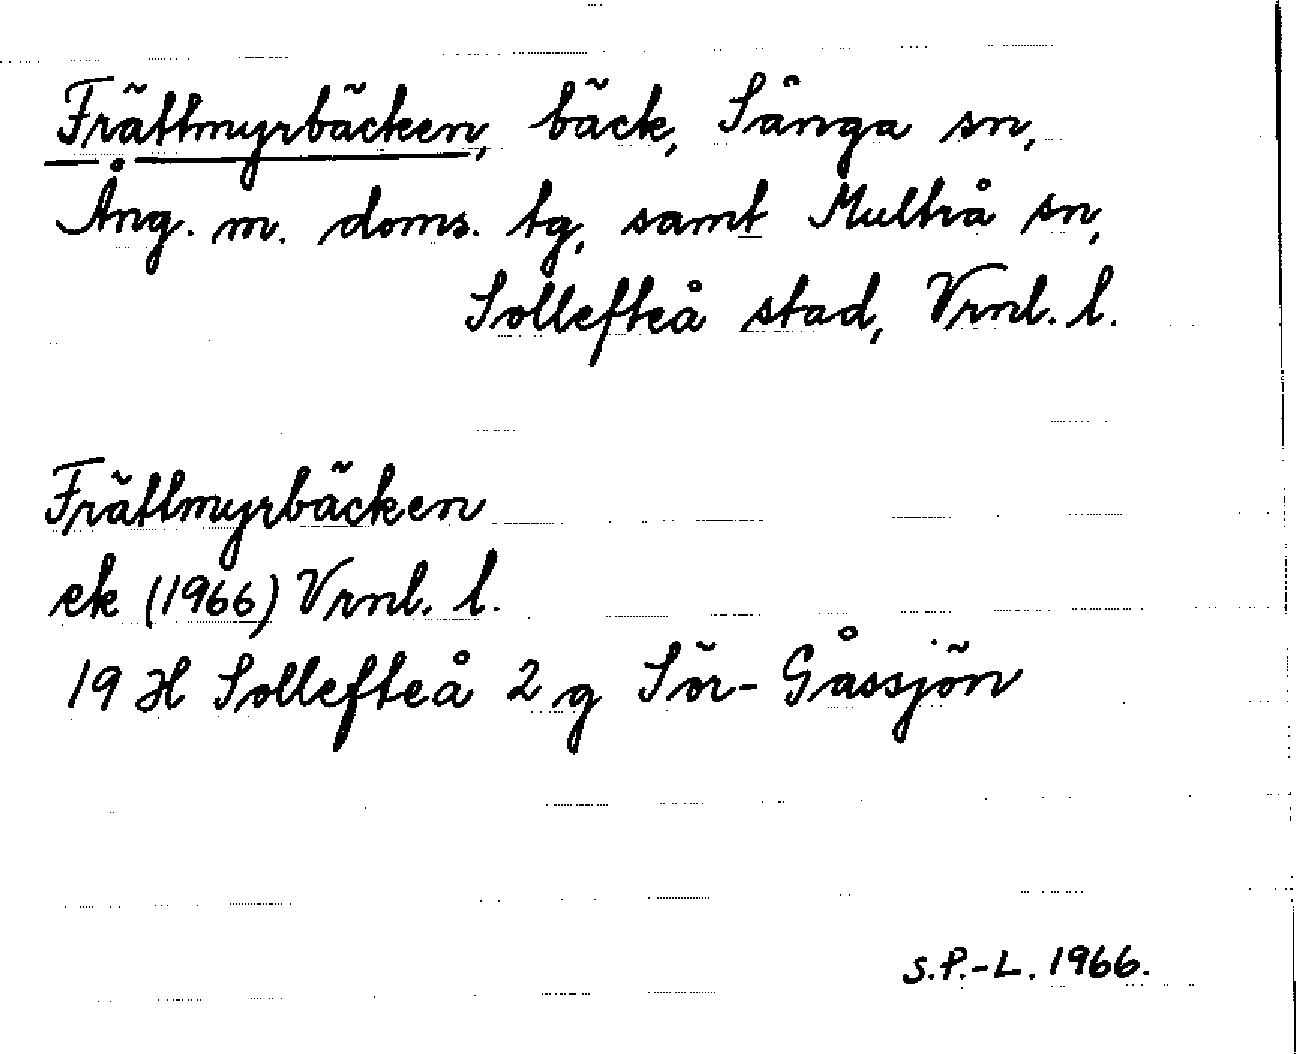 Frättmyrbäcken, bäck, Sånga sn,
Ång. m. doms. tg, samt Multrå sn,
Sollefteå stad, Vrnl. l.
Frättmyrbäcken
ek (1966) Vrnl. l.
19 H Sollefteå 2 g Sör-Gåssjön
S.P.-L. 1966.